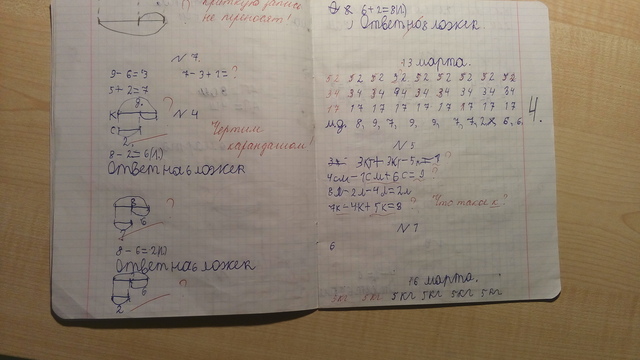 краткую запись
не переносят!
N 7.
9-6=3 7-3+1=?
5+2=7
9. ?
К
N 4
С
2.
Чертим
карандашом!
8-2=6(л)
Ответ на 6 ложек
8 ?
6
2
8-6=2(л)
Ответ на 6 ложек
?
6
2
8. 6+2=8(л)
Ответ на 8 ложек.
13 марта.
52 52 52 52 52 52 52 52 52
34 34 34 34 34 34 34 34 34
17 17 17 17 17 17 17 17 17
4.
8, 9, 7, 9, 9, 7, 7, 6, 6.
N 3
3кг+3кг-5к=1?
4см-1см+6с=9?
8л-2л-4л=2л
7к-4к+5к=8 ? "Что такое к"?
N 7
6
16 марта.
5кг 5кг 5кг 5кг 5кг 5кг